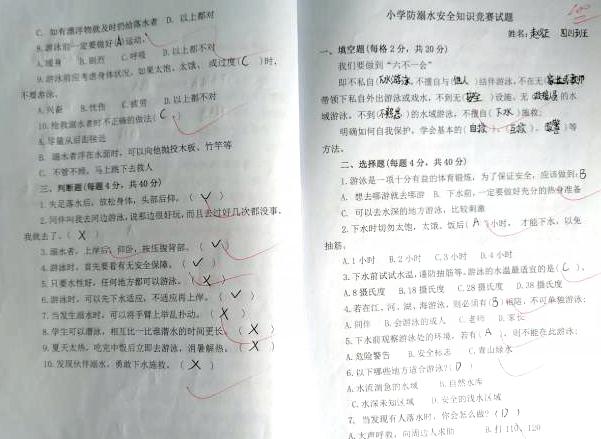 小学防溺水安全知识竞赛试题
100
姓名:
一、填空题(每格2分，共20分)
我们要做到“六不一会”
即不私自(下水游泳)、不擅自与(他人)结伴游泳、不在无(
带领下私自外出游泳或戏水、不到无(安全)设施、无(救援)的水
域游泳、不到(不熟悉)的水域游泳、不擅自(下水)施救;
明确如何自我保护，学会基本的(自救)、(互救)、(
)等
方法。
二、选择题(每题4分，共40分)
1.游泳是一项十分有益的体育锻炼，为了保证安全，应该做到:B
A. 想去哪游就去哪游 B. 下水前，一定要做好充分的热身准备
C. 可以去水深的地方游泳，比较刺激
2.下水时切勿太饱、太饿。饭后(A)小时，才能下水，以免
抽筋。
A.1小时 B.2小时 C.3小时 D.4小时
3.下水前试试水温，谨防抽筋等。游泳的水温最适宜的是(C)。
A.8摄氏度 B.18摄氏度 C.28摄氏度 D.38摄氏度
4.若在江、河、湖、海游泳，则必须有(B)相陪，不可单独游泳;
A.同伴 B.会游泳的成人 C.老师 D.家长
5.下水前观察游泳处的环境，若有(A)，则不能在此游泳;
A.危险警告 B.安全标志 C.青山绿水
6.以下哪些地方适合游泳?(D)
A.水流湍急的水域 B.自然水库
C.水深未知区域 D.安全的浅水区域
7. 当发现有人落水时，你会怎么做?(D)
A.大声呼救，向周边人求助 B.打110、120
C. 如有漂浮物就及时扔给落水者 D. 以上都对
8.游泳前一定要做好(A)运动。
A.暖身 B.剧烈 C.呼吸 D.以上都不对
9.游泳前应考虑身体状况，如果太饱、太饿、或过度(C)时，
不要游泳。
A.兴奋 B.忧伤 C.疲劳 D.以上都不对
10.抢救溺水者时不正确的做法(C)
A.尽量从后面接近
B. 溺水者浮在水面时，可以向他抛投木板、竹竿等
C. 不管不顾，马上跳下去救人
三、判断题(每题4分，共40分)
1.失足落水后，放松身体，头部后仰。(✓)
2.同伴叫我去河边游泳，说那边很好玩，而且去过好几次都没事，
我就去了。(X)
3.溺水者，上岸后，仰卧，按压腹背部。(✓)
4.游泳时，首先要看有无安全保障。(✓)
5.只要水性好，任何地方都可以游泳。(X)
6.游泳时，可以先下水适应，不适应再上岸。(✓)
7.当发生溺水时，可以将手臂上举乱扑动。(X)
8.学生可以潜泳，相互比一比谁潜水的时间更长。(X)
9.夏天太热，吃完中饭后立即去游泳，消暑解热。(X)
10.发现伙伴溺水，勇敢下水施救。(X)